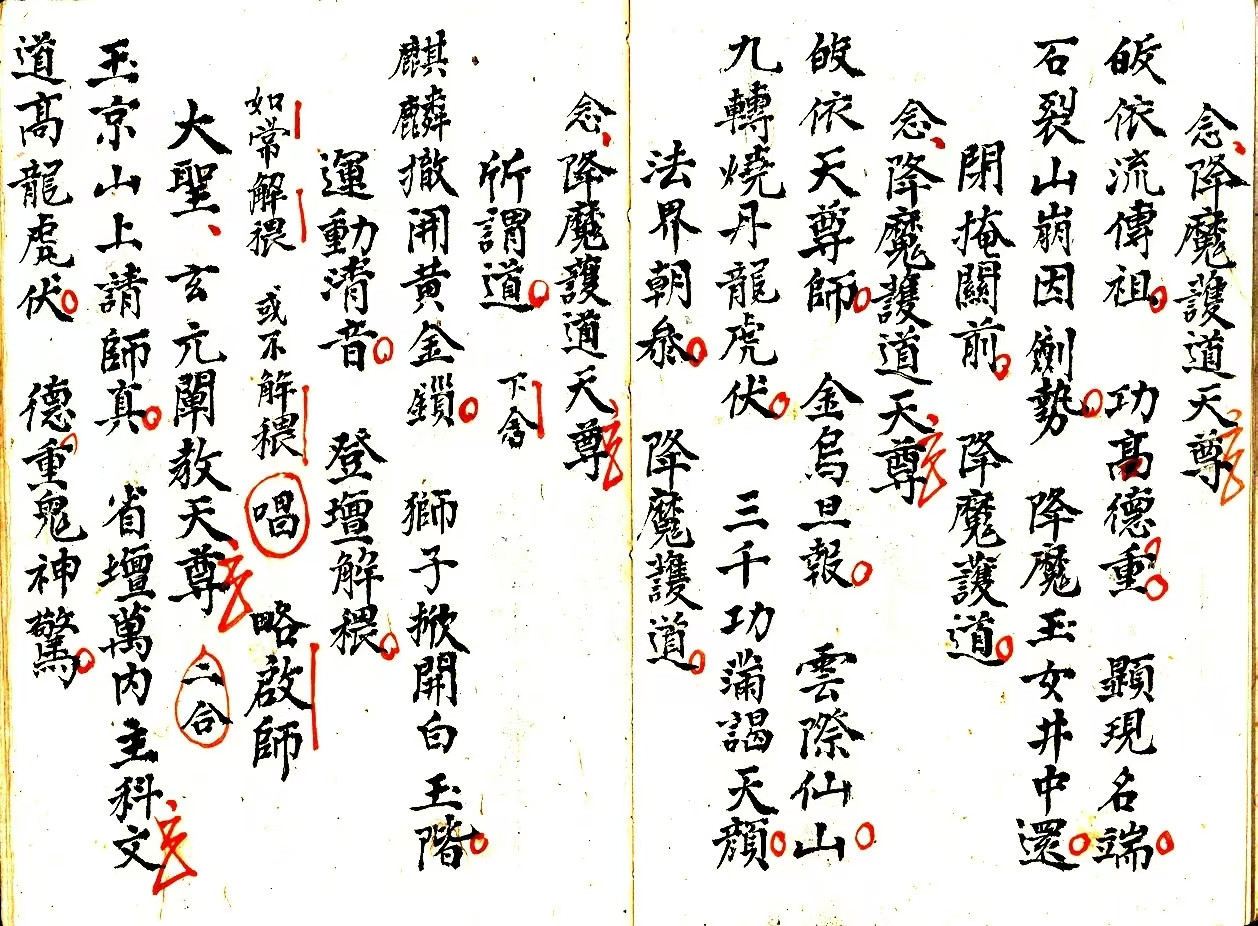 念降魔護道天尊
皈依流傳祖 功高德重 顯現名端
石裂山崩因劍勢 降魔玉女井中還
閉掩關前 降魔護道
念降魔護道天尊
皈依天尊師 金烏旦報 雲際仙山
九轉燒丹龍虎伏 三千功滿謁天顏
法界朝叅 降魔護道
念降魔護道天尊
所謂道 下舍
麒麟撤開黃金鎖 獅子掀開白玉階
運動清音 登壇解穢
如常解穢 或不解穢 唱 略啟師
大聖玄元闡教天尊 二合
玉京山上請師真 省壇萬內主科文
道高龍虎伏 德重鬼神驚